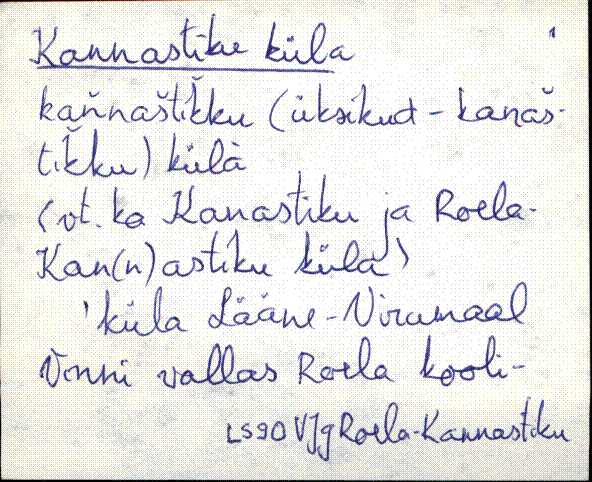 Kannastiku küla 1
kan̆naštik̆ku (üksikud - kanaš-
tik̆ku) külà
(vt. ka Kanastiku ja Roela-
Kan(n)astiku küla)
'küla Lääne-Virumaal
Vinni vallas Roela kooli-
LS90 VJg Roela-Kannastiku